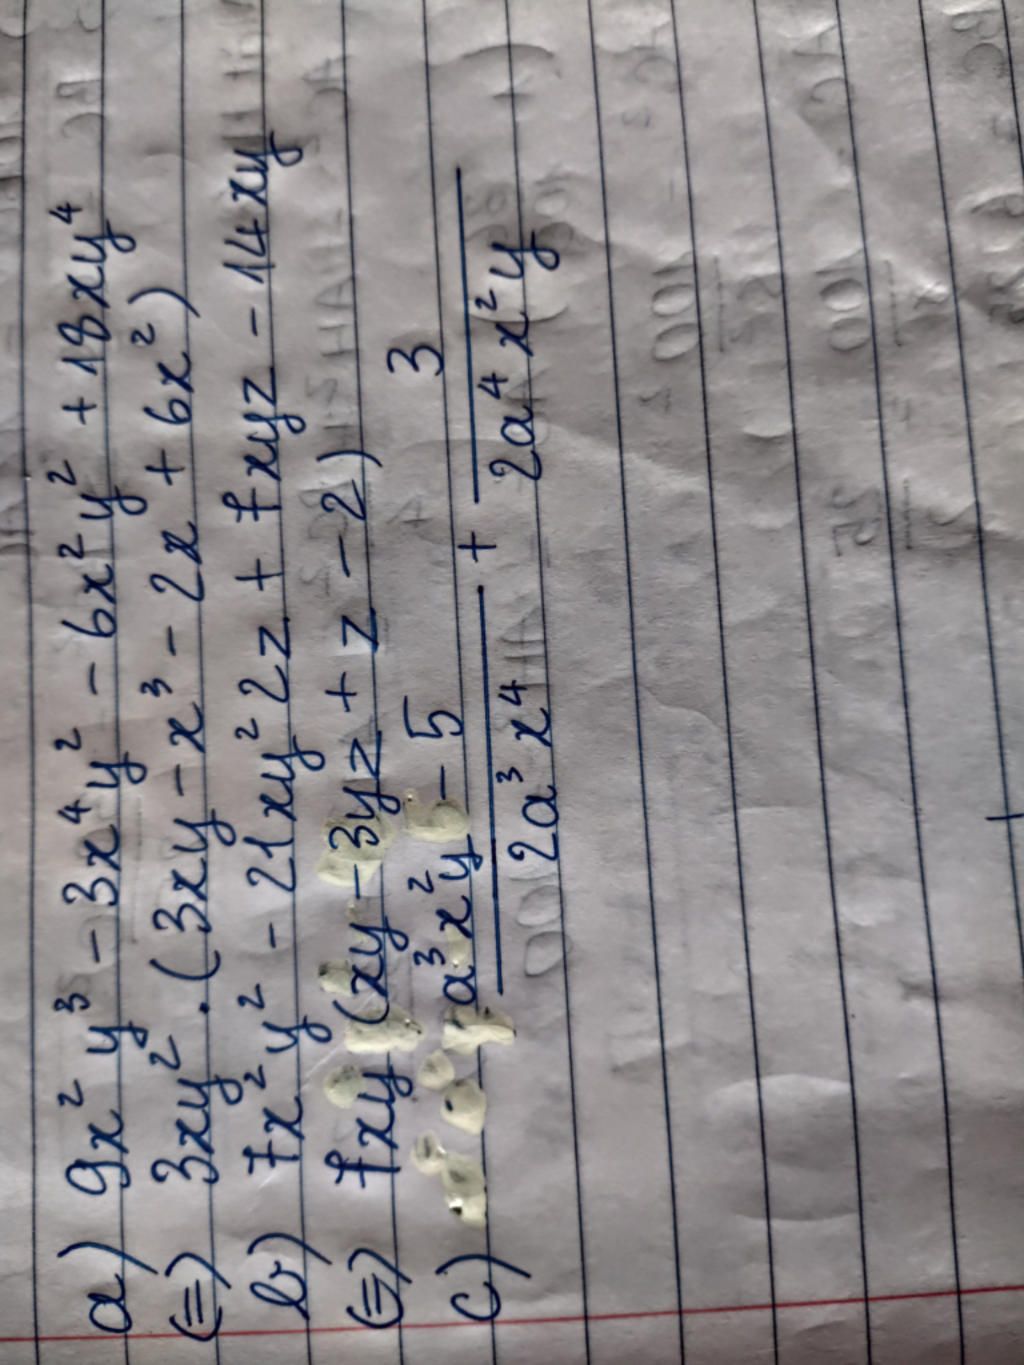 a) 9x² y³ - 3x⁴y² - 6x²y² + 18xy⁴
(=) 3xy² · (3xy - x³ - 2x + 6x²)
b) 7x²y² - 21xy²2z + 7xyz - 14xy
(=) 7xy (xy - 3yz + z - 2)
c) a³x²y - 5 / 2a³x⁴ + 3 / 2a⁴x²y